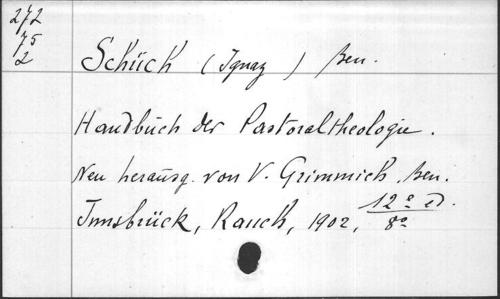 272
75
2
Schüch (Ignaz) Ben.
Handbuch der Pastoraltheologie.
Neu herausg. von V. Grimmich, Ben.
Innsbrück, Rauch, 1902, 12º éd.
8º